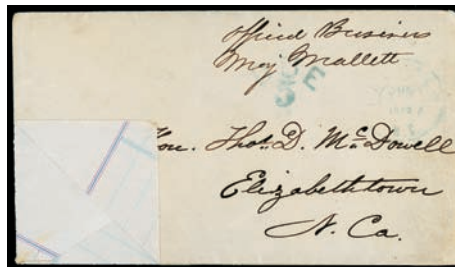 Official Business
Maj Mallett
Hon. Thos. D. McDowell
Elizabethtown
N. Ca.